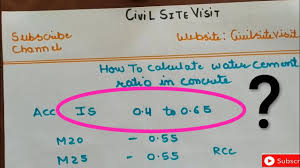 CIVIL SITE VISIT
Subscribe Channel
Website: Civilsitevisit
How To Calculate water cement
ratio in concrete
Acc IS 0.4 to 0.65 ?
M20 - 0.55
M25 - 0.55 RCC
Subscr